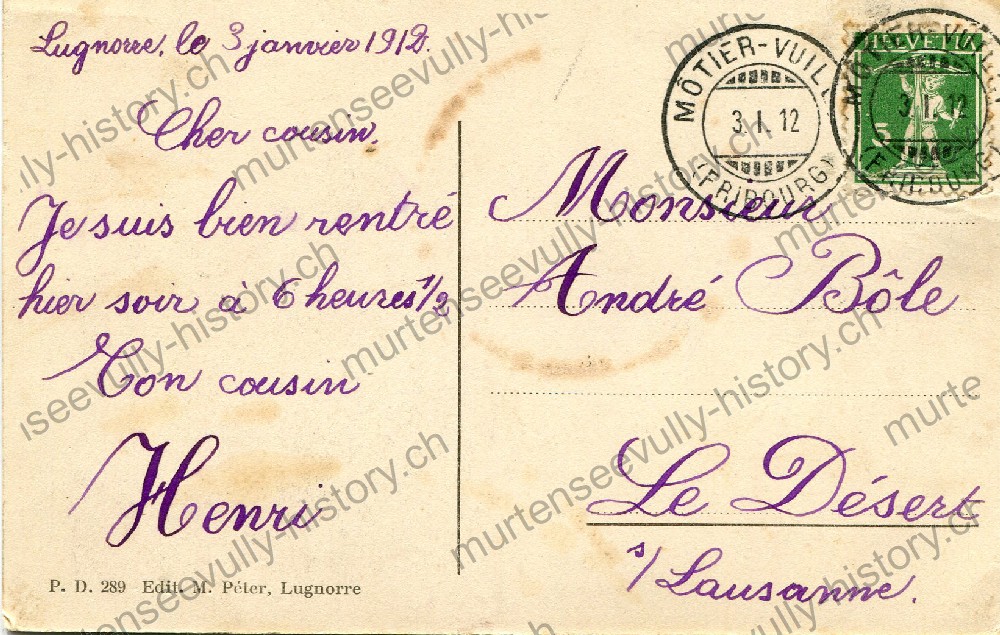 Lugnorre, le 3 janvier 1912.
Cher cousin.
Je suis bien rentré
hier soir à 6 heures 1/2
Ton cousin
Henri
P. D. 289 Edit. M. Péter, Lugnorre
MÔTIER-VUILL
3. I. 12
(FRIBOURG)
HELVETIA
5
MÔTIER-VUILLY
3. I. 12
(FRIBOURG)
Monsieur
André Bôle
Le Désert
s/ Lausanne.
murtenseevully-history.ch